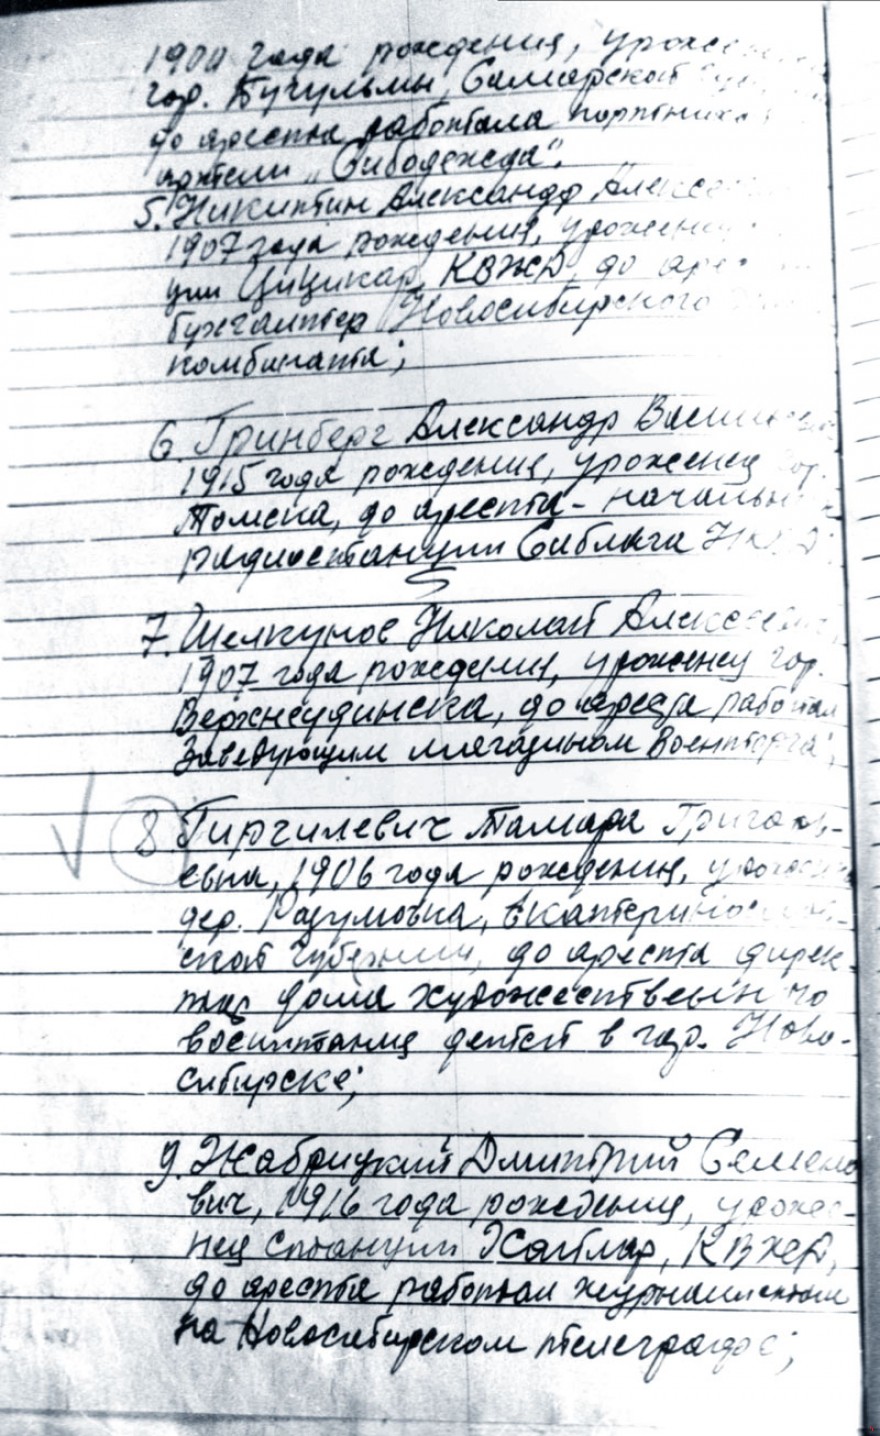 1900 года рождения, уроже
гор. Бугульмы, Самарской
до ареста работала портниха
артели „Сибодежда".
5. Никитин Александр Алексе
1907 года рождения, уроженец
ции Цицикар, КВЖД, до аре
бухгалтер Новосибирского
комбината;
6. Гринберг Александр Васил
1915 года рождения, уроженец гор.
Томска, до ареста - начальн
радиостанции Сиблага НКВД;
7. Шелкунов Николай Алексеевич,
1907 года рождения, уроженец гор.
Верхнеудинска, до ареста работал
Заведующим магазином Военторга;
8 Гиргилевич Тамара Григорь-
евна, 1906 года рождения, урожен
дер. Разумовка, Екатеринослав-
ской губернии, до ареста дирек-
тор дома художественного
воспитания детей в гор. Ново-
сибирске;
9. Жабрицкий Дмитрий Семено
вич, 1916 года рождения, уроже-
нец станции Хайлар, КВЖД,
до ареста работал журналистом
на Новосибирском телеграфе;